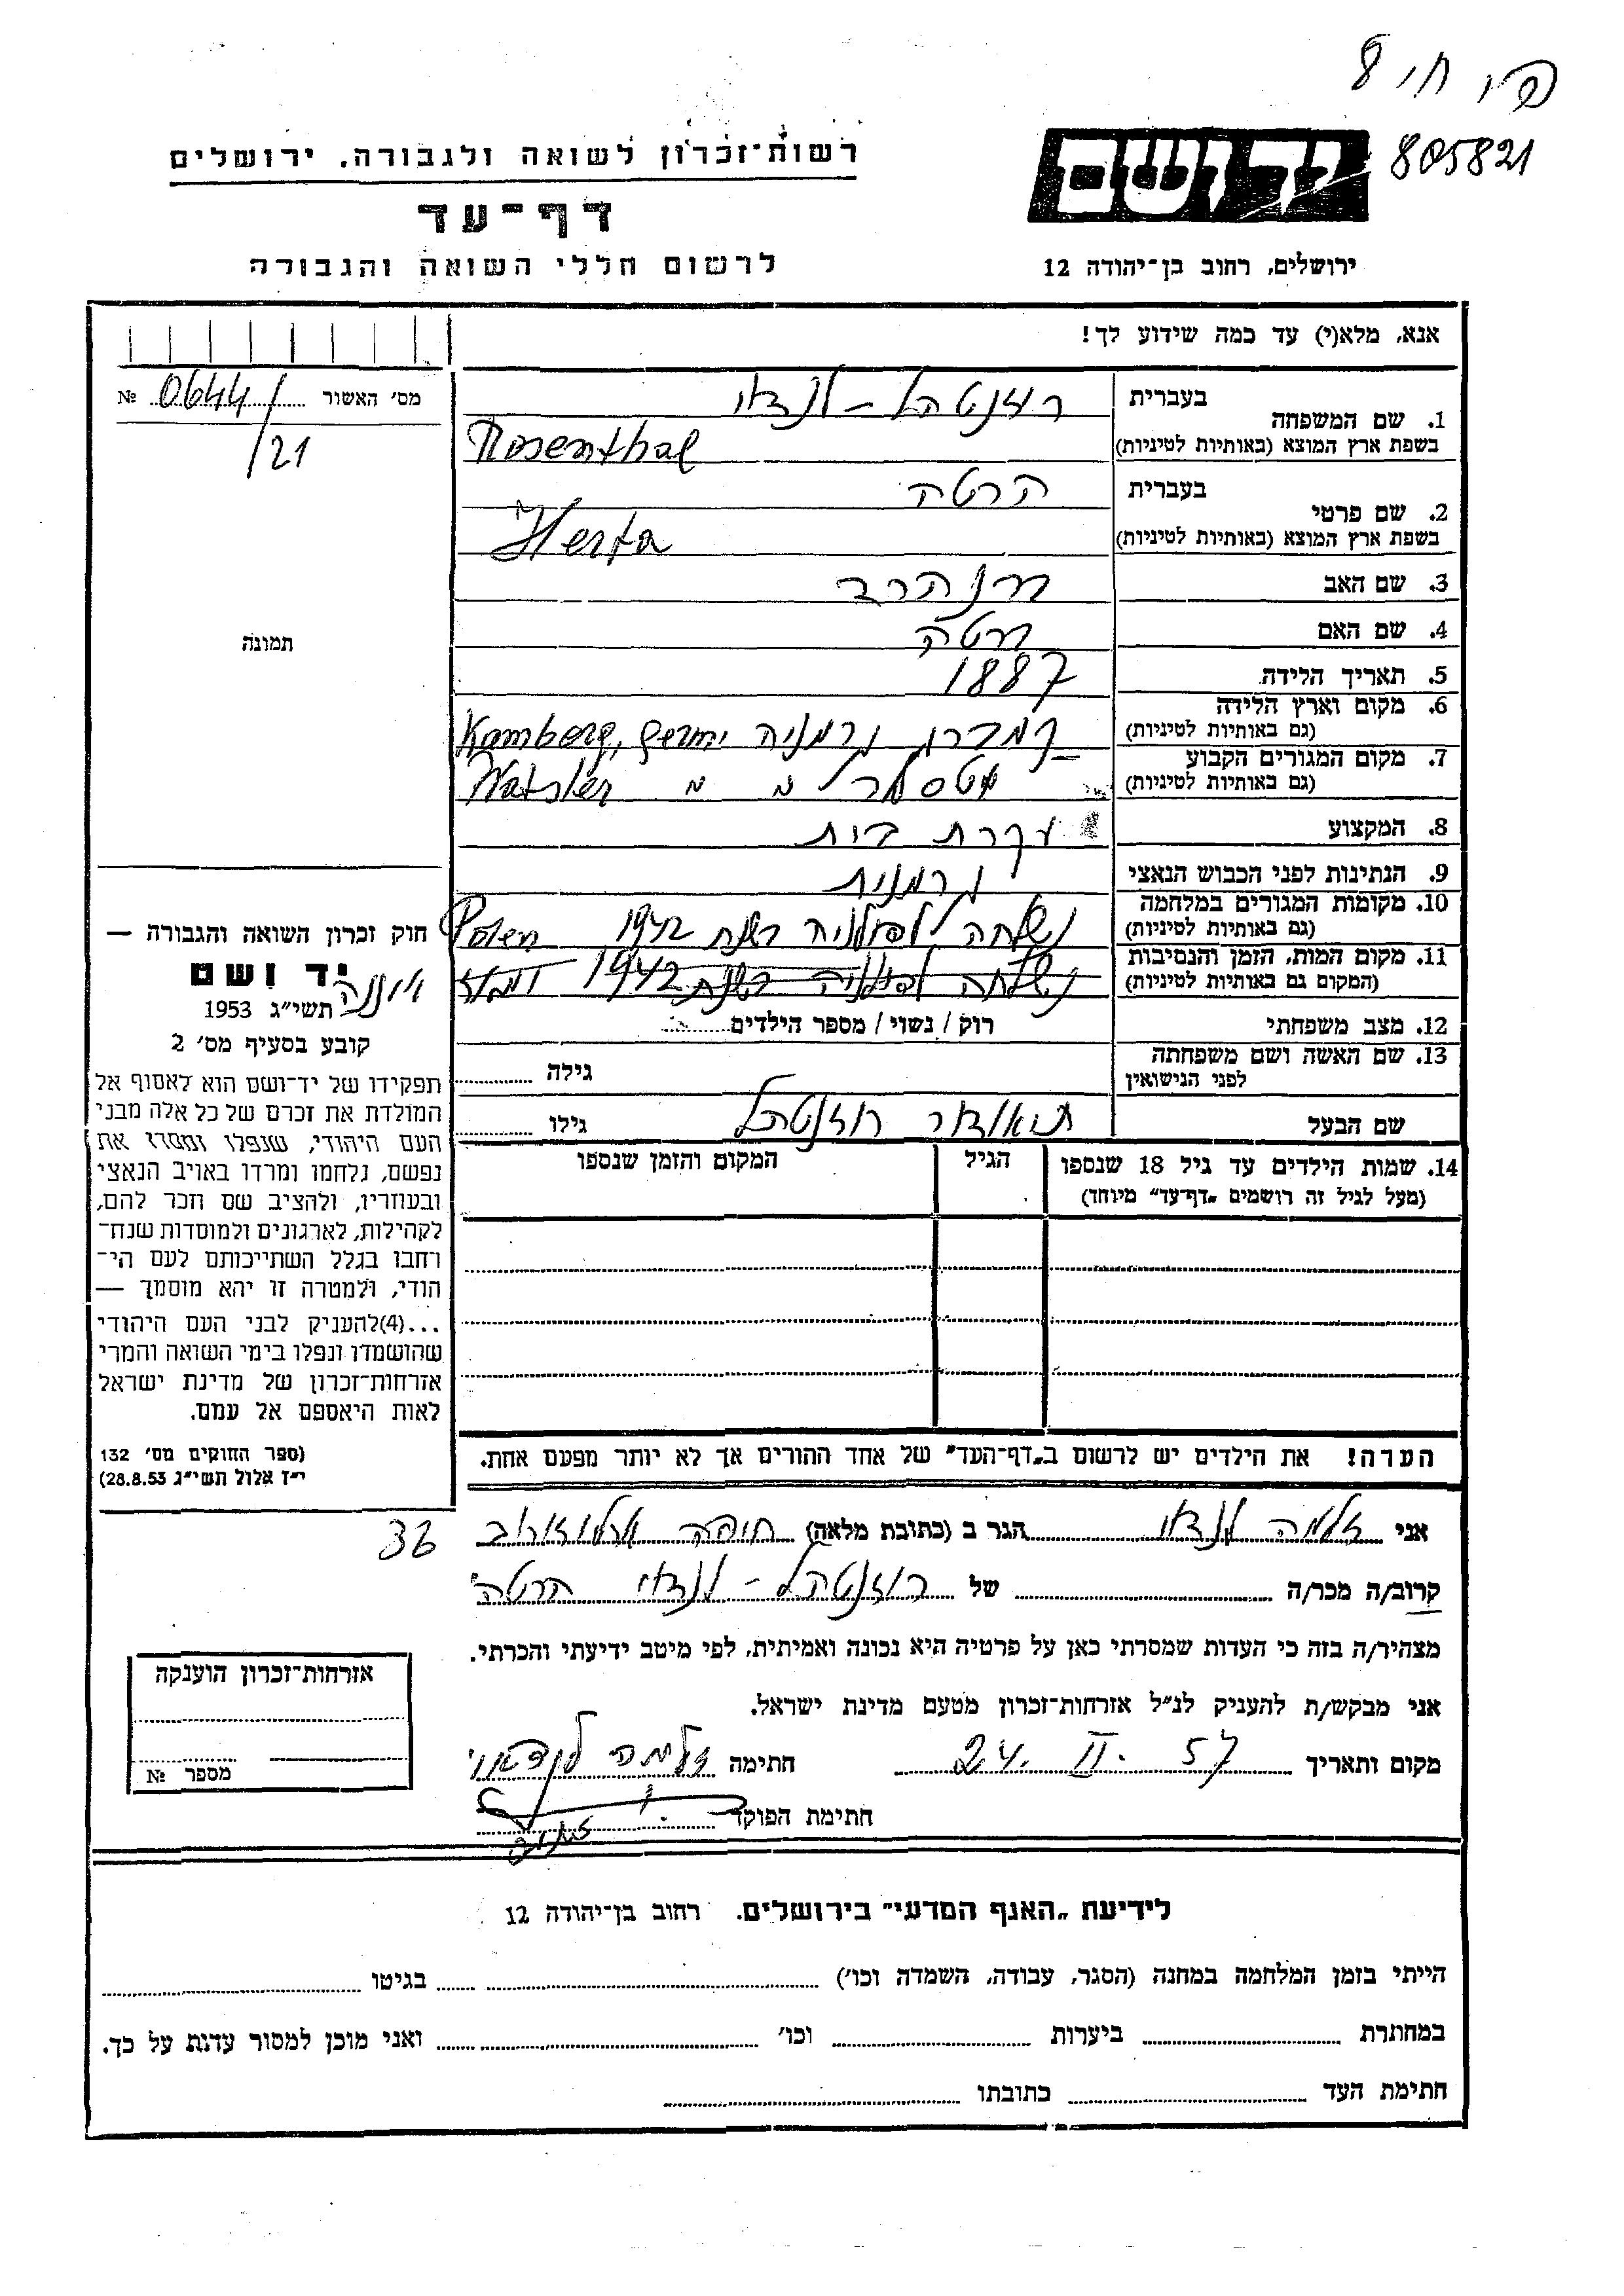 805821
רשות־זכרון לשואה ולגבורה, ירושלים
יד ושם
דף־עד
לרשום חללי השואה והגבורה
ירושלים, רחוב בן־יהודה 12
אנא, מלא(י) עד כמה שידוע לך!
מס׳ האשור 0644/ №
/21
1. שם המשפחה
בעברית רוזנטהל – לנדאו
בשפת ארץ המוצא (באותיות לטיניות) Rosenthal
2. שם פרטי
בעברית הרטה
בשפת ארץ המוצא (באותיות לטיניות) Herta
3. שם האב
4. שם האם מרטה
5. תאריך הלידה 1887
6. מקום וארץ הלידה
(גם באותיות לטיניות) קמברג גרמניה Kamberg,
7. מקום המגורים הקבוע
(גם באותיות לטיניות)
8. המקצוע עקרת בית
9. הנתינות לפני הכבוש הנאצי גרמנית
10. מקומות המגורים במלחמה
(גם באותיות לטיניות) נשלחה לפולניה בשנת 1942 Polen
11. מקום המות, הזמן והנסיבות
(המקום גם באותיות לטיניות) נשלחה לפולניה בשנת 1942
12. מצב משפחתי רוק / נשוי / מספר הילדים
13. שם האשה ושם משפחתה
לפני הנישואין גילה
שם הבעל תיאודור רוזנטהל גילו
14. שמות הילדים עד גיל 18 שנספו הגיל המקום והזמן שנספו
(מעל לגיל זה רושמים „דף־עד” מיוחד)
תמונה
חוק זכרון השואה והגבורה —
יד ושם
תשי״ג 1953
קובע בסעיף מס׳ 2
תפקידו של יד־ושם הוא לאסוף אל
המולדת את זכרם של כל אלה מבני
העם היהודי, שנפלו ומסרו את
נפשם, נלחמו ומרדו באויב הנאצי
ובעוזריו, ולהציב שם וזכר להם,
לקהילות, לארגונים ולמוסדות שנח־
רחבו בגלל השתייכותם לעם הי־
הודי, ולמטרה זו יהא מוסמך —
...(4)להעניק לבני העם היהודי
שהושמדו ונפלו בימי השואה והמרי
אזרחות־זכרון של מדינת ישראל
לאות היאספם אל עמם.
(ספר החוקים מס׳ 132
י״ז אלול תשי״ג 28.8.53)
הערה! את הילדים יש לרשום ב„דף־העד” של אחד ההורים אך לא יותר מפעם אחת.
אני זלמה לנדאו הגר ב (כתובת מלאה) חיפה ארלוזורוב
36
קרוב/ה מכר/ה של רוזנטהל – לנדאו הרטה
מצהיר/ה בזה כי העדות שמסרתי כאן על פרטיה היא נכונה ואמיתית, לפי מיטב ידיעתי והכרתי.
אני מבקש/ת להעניק לנ״ל אזרחות־זכרון מטעם מדינת ישראל.
מקום ותאריך 24. II. 57 חתימה זלמה לנדאו
חתימת הפוקד
אזרחות־זכרון הוענקה
מספר №
לידיעת „האגף המדעי” בירושלים. רחוב בן־יהודה 12
הייתי בזמן המלחמה במחנה (הסגר, עבודה, השמדה וכו׳) בגיטו
במחתרת ביערות וכו׳ ואני מוכן למסור עדות על כך.
חתימת העד כתובתו